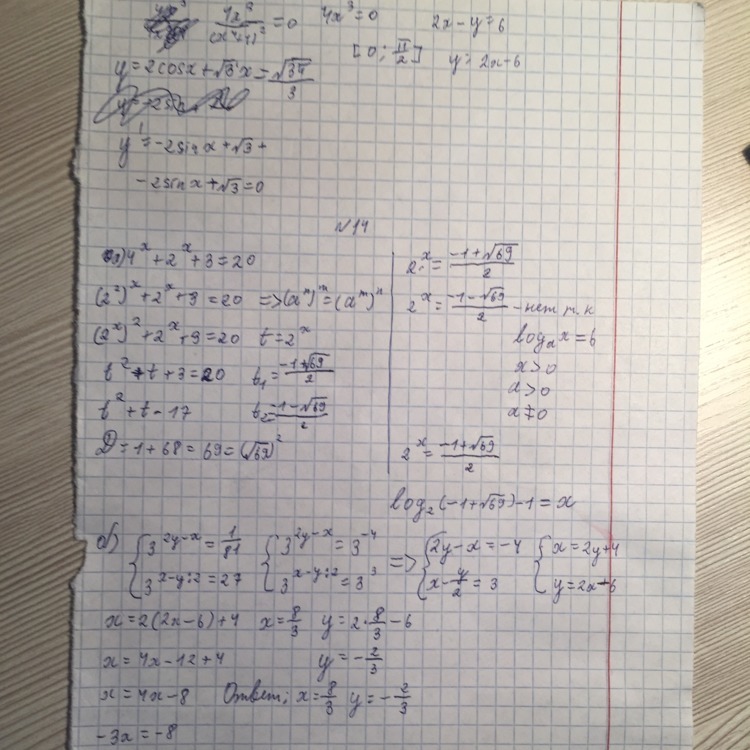 4x³/(x⁴+1)² = 0   4x³=0   2x-y=6
[0; π/2]   y=2x-6
y=2cosx+√3x = √3π/3
y'=-2sinx+√3+
-2sinx+√3=0
№14
a) 4ˣ+2ˣ+3=20
(2²)ˣ+2ˣ+3=20 => (aⁿ)ᵐ=(aᵐ)ⁿ
(2ˣ)²+2ˣ+3=20   t=2ˣ
t²+t+3=20   t₁=(-1+√69)/2
t²+t-17   t₂=(-1-√69)/2
D=1+68=69=(√69)²
2ˣ=(-1+√69)/2
2ˣ=(-1-√69)/2 - нет т.к
logₐx=6
x>0
a>0
a≠0
2ˣ=(-1+√69)/2
log₂(-1+√69)-1=x
б) {3^(2y-x)=1/81   {3^(2y-x)=3⁻⁴ => {2y-x=-4   {x=2y+4
{3^(x-y:2)=27   {3^(x-y:2)=3³   {x-y/2=3   {y=2x-6
x=2(2x-6)+4   x=8/3   y=2·8/3-6
x=4x-12+4   y=-2/3
x=4x-8   Ответ; x=8/3   y=-2/3
-3x=-8